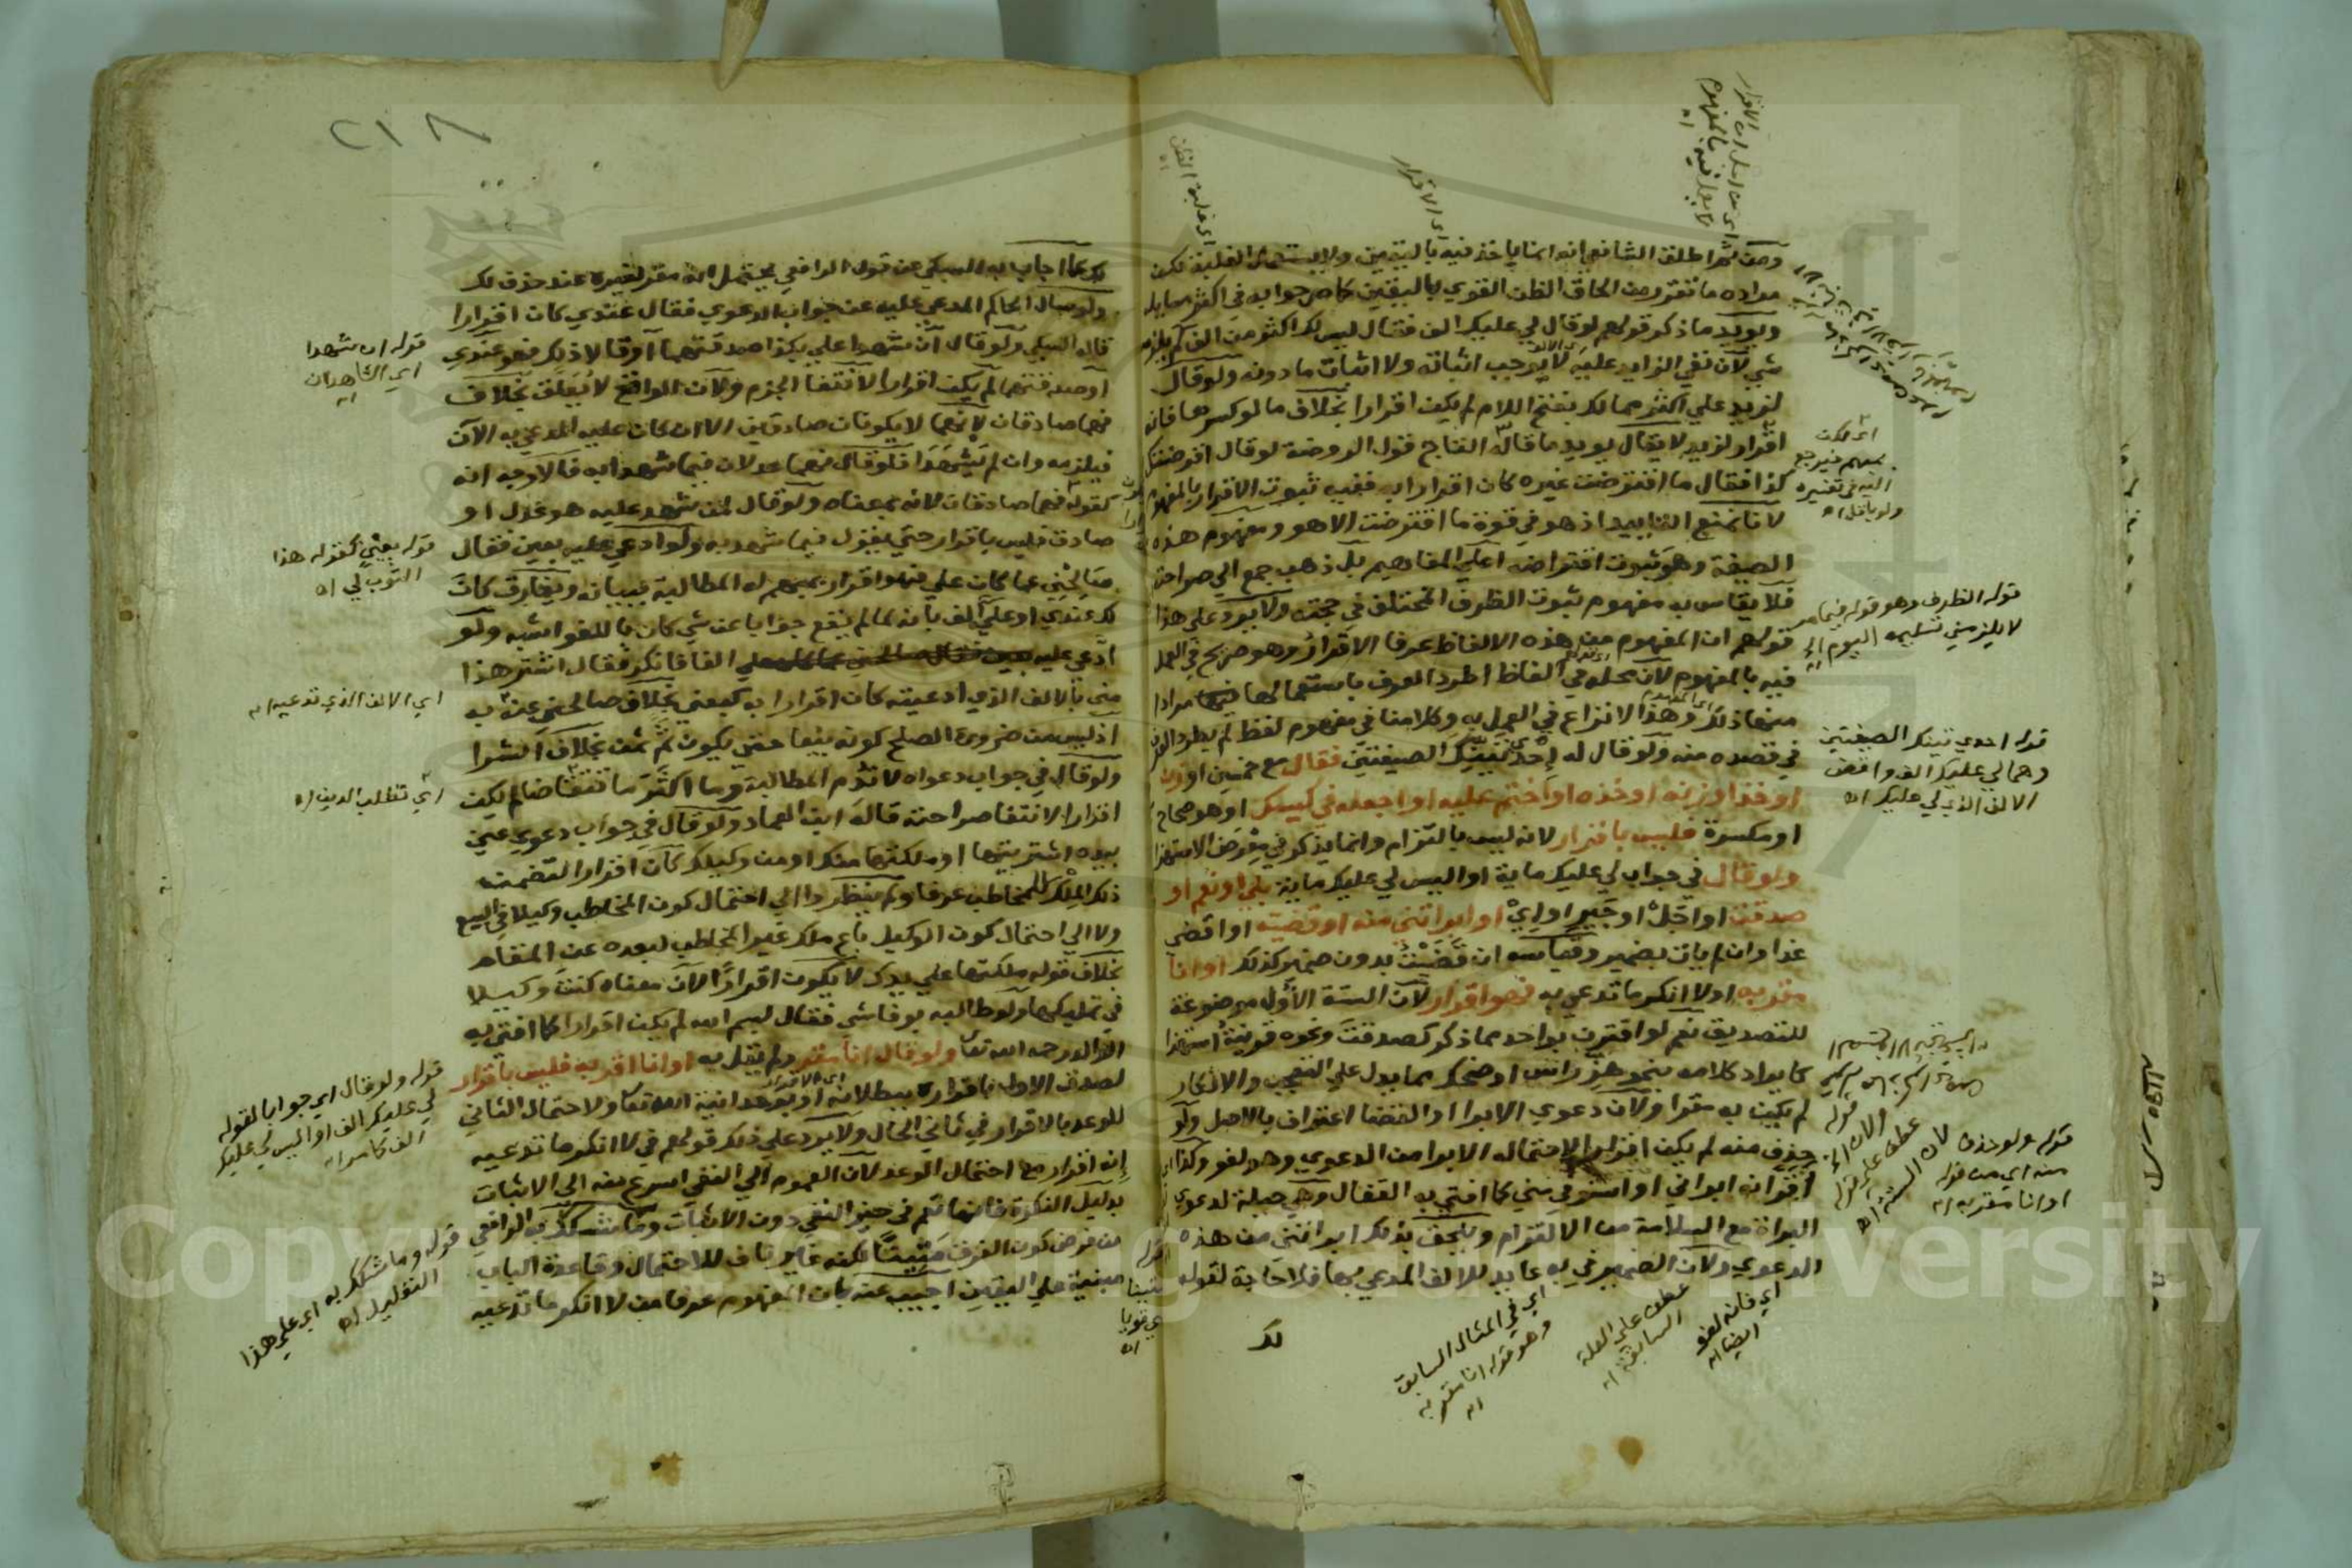 ومن ثم اطلق الشافعي انه انما ياخذ فيه باليقين ولا يستعمل الغلبة لكن
مراده ما تقرر من الحاق الظن القوي باليقين كما مر جوابه في اكثر مسايله
ويويد ما ذكر قولهم لوقال لي عليك الف فقال ليس لك اكثر من الف لم يلزمه
شي لان نفي الزايد عليه لا يوجب اثباته ولا اثبات ما دونه ولوقال
لزيد علي اكثر مما لك بفتح اللام لم يكن اقرارا بخلاف ما لو كسرها فانه
اقرار لزيد لا يقال يويد ما قاله التاج قول الروضة لوقال اقرضتك
كذا فقال ما اقترضت غيره كان اقرارا به ففيه ثبوت الاقرار بالمفهوم
لانا نمنع التاييد اذ هو في قوة ما اقترضت الا هو ومفهوم هذه
الصيغة وهو ثبوت اقتراضه اعلي المفاهيم بل ذهب جمع الي صراحته
فلا يقاس به مفهوم ثبوت الظرف المختلف في حجته ولا يرد علي هذا
قولهم ان المفهوم من هذه الالفاظ عرفا الاقرار وهو صريح في العمل
فيه بالمفهوم لان محله في الفاظ اطرد العرف باستعمالها مرادا
منها ذلك وهذا لا نزاع في العمل به وكلامنا في مفهوم لفظ لم يطرد العرف
في قصده منه ولوقال له احدي تينك الصيغتين فقال مع خمسين او زن
او خذ او زنه او خذه او اختم عليه او اجعله في كيسك او هو صحاح
او مكسرة فليس باقرار لانه ليس بالتزام وانما يذكر في معرض الاستهزا
ولوقال في جواب لي عليك ماية او اليس لي عليك ماية بلي او نعم او
صدقت او اجل او جير او اي او ابراتني منه او قضيته او اقضي
غدا وان لم يات بضمير وقياسه ان قضيت بدون ضمير كذلك او انا
مقر به او لا انكر ما تدعي به فهو اقرار لان الستة الاول موضوعة
للتصديق نعم لو اقترن بواحد مما ذكر كصدقت ونحوه قرينة استهزا
كايراد كلامه بنحو هز راس او ضحك مما يدل علي التعجب والانكار
لم يكن به مقرا ولان دعوي الابرا او القضا اعتراف بالاصل ولو
حذف منه لم يكن اقرارا لاحتماله الابرا من الدعوي وهو لغو وكذا
اقر انه ابراني او استوفي مني كما افتي به القفال وهي حيلة لدعوي
البراة مع السلامة من الالتزام ويلحق بذلك ابراتني من هذه
الدعوي ولان الضمير في به عايد للالف المدعي بها فلا حاجة لقوله
لك
اي الاقرار
قوله الظرف وهو قوله فيما مر
لا يلزمني تسليمه اليوم
قوله احدي تينك الصيغتين
وهما لي عليك الف واقض
الالف الذي لي عليك اه
قوله ولو حذف
منه اي من قوله
او انا مقر به اه
اي فانه لغو
ايضا اه
عطف علي العلة
السابقة اه
اي في المثال السابق
وهو قوله انا مقر به
اه
٢١٨
لك عما اجاب به السبكي عن قول الرافعي يحتمل انه مقر لغيره عند حذف لك
ولو سال الحاكم المدعي عليه عن جواب الدعوي فقال عندي كان اقرارا
قاله السبكي ولوقال ان شهدا علي بكذا صدقتهما او قالا ذلك فهو عندي
او صدقتهما لم يكن اقرارا لانتفا الجزم ولان الواقع لا يعلق بخلاف
فهما صادقان لانهما لا يكونان صادقين الا ان كان عليه المدعي به الان
فيلزمه وان لم يشهدا فلوقال فهما عدلان فيما شهدا به فالاوجه انه
كقوله فهما صادقان لانه بمعناه ولوقال لمن شهد عليه هو عدل او
صادق فليس باقرار حتي يقول فيما شهد به ولو ادعي عليه بعين فقال
صالحني عما كان علي فهو اقرار بمبهم له المطالبة ببيانه ويفارق كان
لك عندي او علي الف بانه لما لم يقع جوابا عن شي كان باللغو اشبه ولو
ادعي عليه الفا فانكر فقال اشتر هذا
مني بالالف الذي ادعيته كان اقرارا به كبعني بخلاف صالحني عنه به
اذ ليس من ضرورة الصلح كونه بيعا حتي يكون ثم ثمن بخلاف الشرا
ولوقال في جواب دعواه لا تدم المطالبة وما اكثر ما تتقاضا لم يكن
اقرارا لانتفا صراحته قاله ابن العماد ولوقال في جواب دعوي عين
بيده اشتريتها او ملكتها منك او من وكيلك كان اقرارا لتضمنه
ذلك الملك للمخاطب عرفا ولم ينظروا الي احتمال كون المخاطب وكيلا في البيع
ولا الي احتمال كون الوكيل باع ملك غير المخاطب لبعده عن المقام
بخلاف قوله ملكتها علي يدك لا يكون اقرارا لان معناه كنت وكيلا
في تمليكها ولو طالبه بوفا شي فقال بسم الله لم يكن اقرارا كما افتي به
الوالد رحمه الله تعا ولوقال انا مقر ولم يقل به او انا اقر به فليس باقرار
لصدق الاول باقراره ببطلانه او بوحدانية الله تعا ولاحتمال الثاني
للوعد بالاقرار في ثاني الحال ولا يرد علي ذلك قولهم في لا انكر ما تدعيه
انه اقرار مع احتمال الوعد لان العموم الي النفي اسرع منه الي الاثبات
بدليل النكرة فانها تعم في حيز النفي دون الاثبات وما شكك به الرافعي
من فرض كون الفرق مثبتا لكنه غير ناف للاحتمال وقاعدة الباب
مبنية علي اليقين اجيب عنه بان المفهوم عرفا من لا انكر ما تدعيه
قوله ان شهدا
اي الشاهدان
اه
قوله بعني كقوله هذا
الثوب لي اه
اي الالف الذي تدعيه اه
اي تطلب الدين اه
قوله ولوقال اي جوابا لقوله
لي عليك الف او اليس لي عليك
الف كما مر اه
قوله وما شكك به اي علي هذا
التعليل اه
Copyright © King Saud University